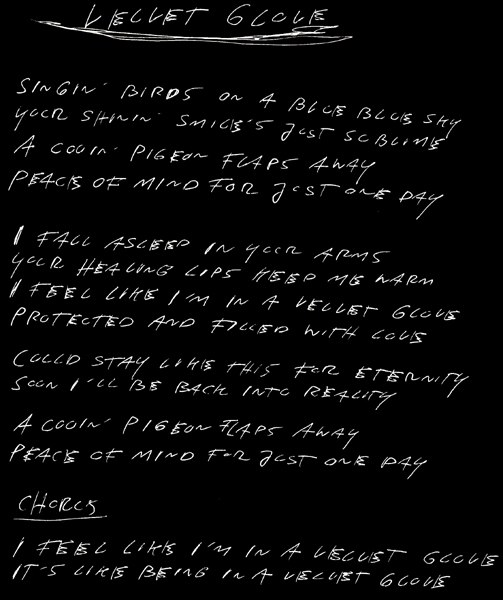 VELVET GLOVE
SINGIN' BIRDS ON A BLUE BLUE SKY
YOUR SHININ' SMILE'S JUST SUBLIME
A COOIN' PIGEON FLAPS AWAY
PEACE OF MIND FOR JUST ONE DAY
I FALL ASLEEP IN YOUR ARMS
YOUR HEALING LIPS KEEP ME WARM
I FEEL LIKE I'M IN A VELVET GLOVE
PROTECTED AND FILLED WITH LOVE
COULD STAY LIKE THIS FOR ETERNITY
SOON I'LL BE BACK INTO REALITY
A COOIN' PIGEON FLAPS AWAY
PEACE OF MIND FOR JUST ONE DAY
CHORUS
I FEEL LIKE I'M IN A VELVET GLOVE
IT'S LIKE BEING IN A VELVET GLOVE